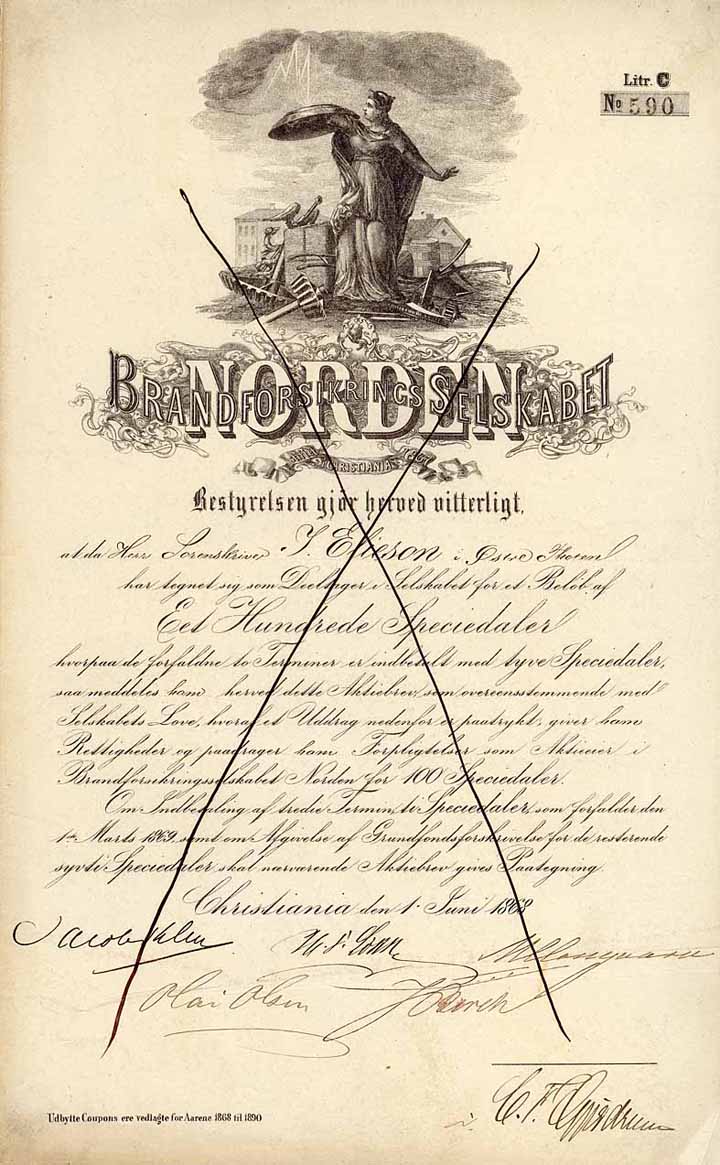 Litr. C
No 590
BRANDFORSIKRINGSSELSKABET
NORDEN
CHRISTIANIA
Bestyrelsen gjør herved vitterligt,
at da Herr Sorenskriver I. Elieson i Østre
har tegnet sig som Deeltager i Selskabet for et Beløb af
Eet Hundrede Speciedaler
hvorpaa de forfaldne to Terminer er indbetalt med tyve Speciedaler,
saa meddeles ham herved dette Aktiebrev, som overeensstemmende med
Selskabets Love, hvoraf et Uddrag nedenfor er paatrykt, giver ham
Rettigheder og paadrager ham Forpligtelser som Aktieeier i
Brandforsikringsselskabet Norden for 100 Speciedaler.
Om Indbetaling af tredie Termin, ti Speciedaler, som forfalder den
1ste Marts 1869, samt om Afgivelse af Grundfondsforskrivelse for de resterende
syvti Speciedaler skal nærværende Aktiebrev gives Paategning.
Christiania den 1. Juni 1868
Olai Olsen
Udbytte Coupons ere vedlagte for Aarene 1868 til 1890